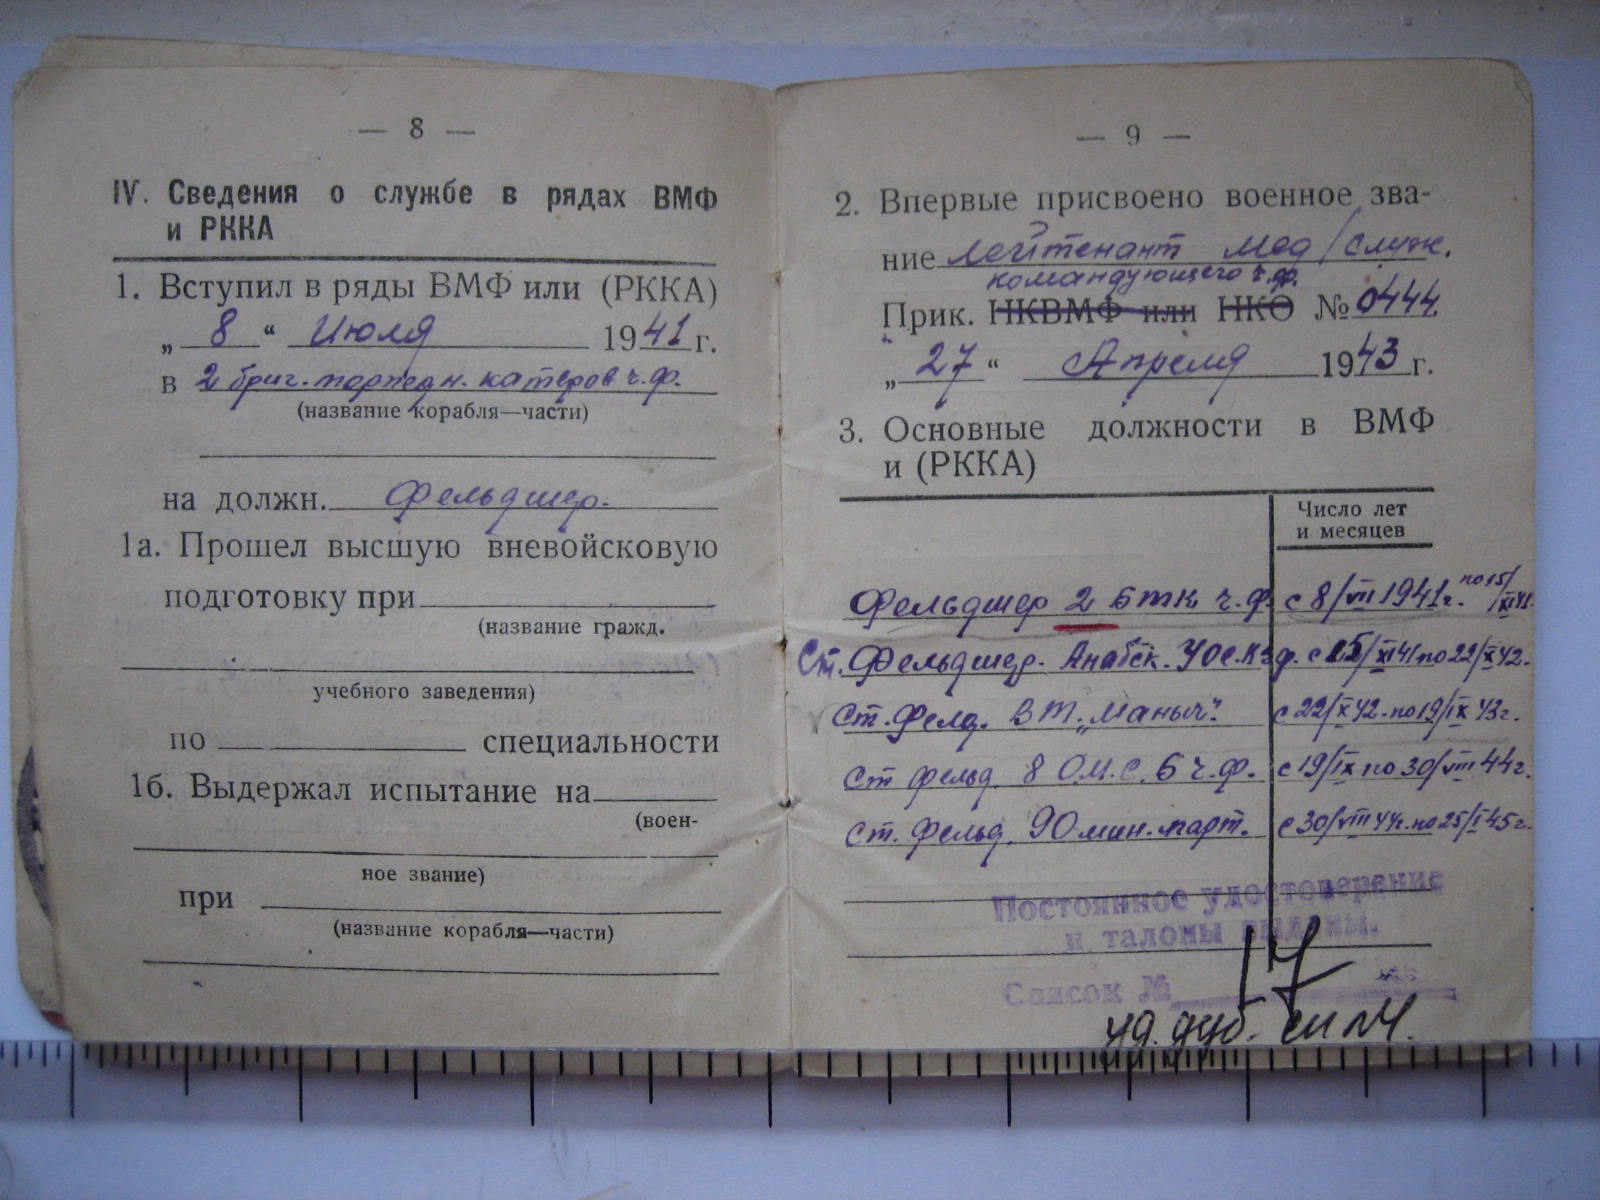 — 8 —
IV. Сведения о службе в рядах ВМФ
и РККА
1. Вступил в ряды ВМФ или (РККА)
„ 8 “ Июля 1941 г.
в 2 бриг. торпедн. катеров ч.ф.
(название корабля—части)
на должн. Фельдшер.
1а. Прошел высшую вневойсковую
подготовку при
(название гражд.
учебного заведения)
по специальности
1б. Выдержал испытание на
(воен-
ное звание)
при
(название корабля—части)
— 9 —
2. Впервые присвоено военное зва-
ние лейтенант мед/служ.
командующего ч.ф.
Прик. НКВМФ или НКО № 0444.
„ 27 “ Апреля 1943 г.
3. Основные должности в ВМФ
и (РККА)
Число лет
и месяцев
Фельдшер 2 БТК ч.ф. с 8/VII 1941г. по 15/XI 41.
Ст. Фельдшер. с 15/XI 41 по 22/X 42.
Ст. Фелд. ВТ. „Маныч“. с 22/X 42. по 19/IX 43г.
Ст фельд. 8 О.М.С. Б ч.ф. с 19/IX по 30/VIII 44г.
Ст. Фельд. 90 мин. парт. с 30/VIII 44г. по 25/I 45г.
Постоянное удостоверение
и талоны выданы.
Список № 17